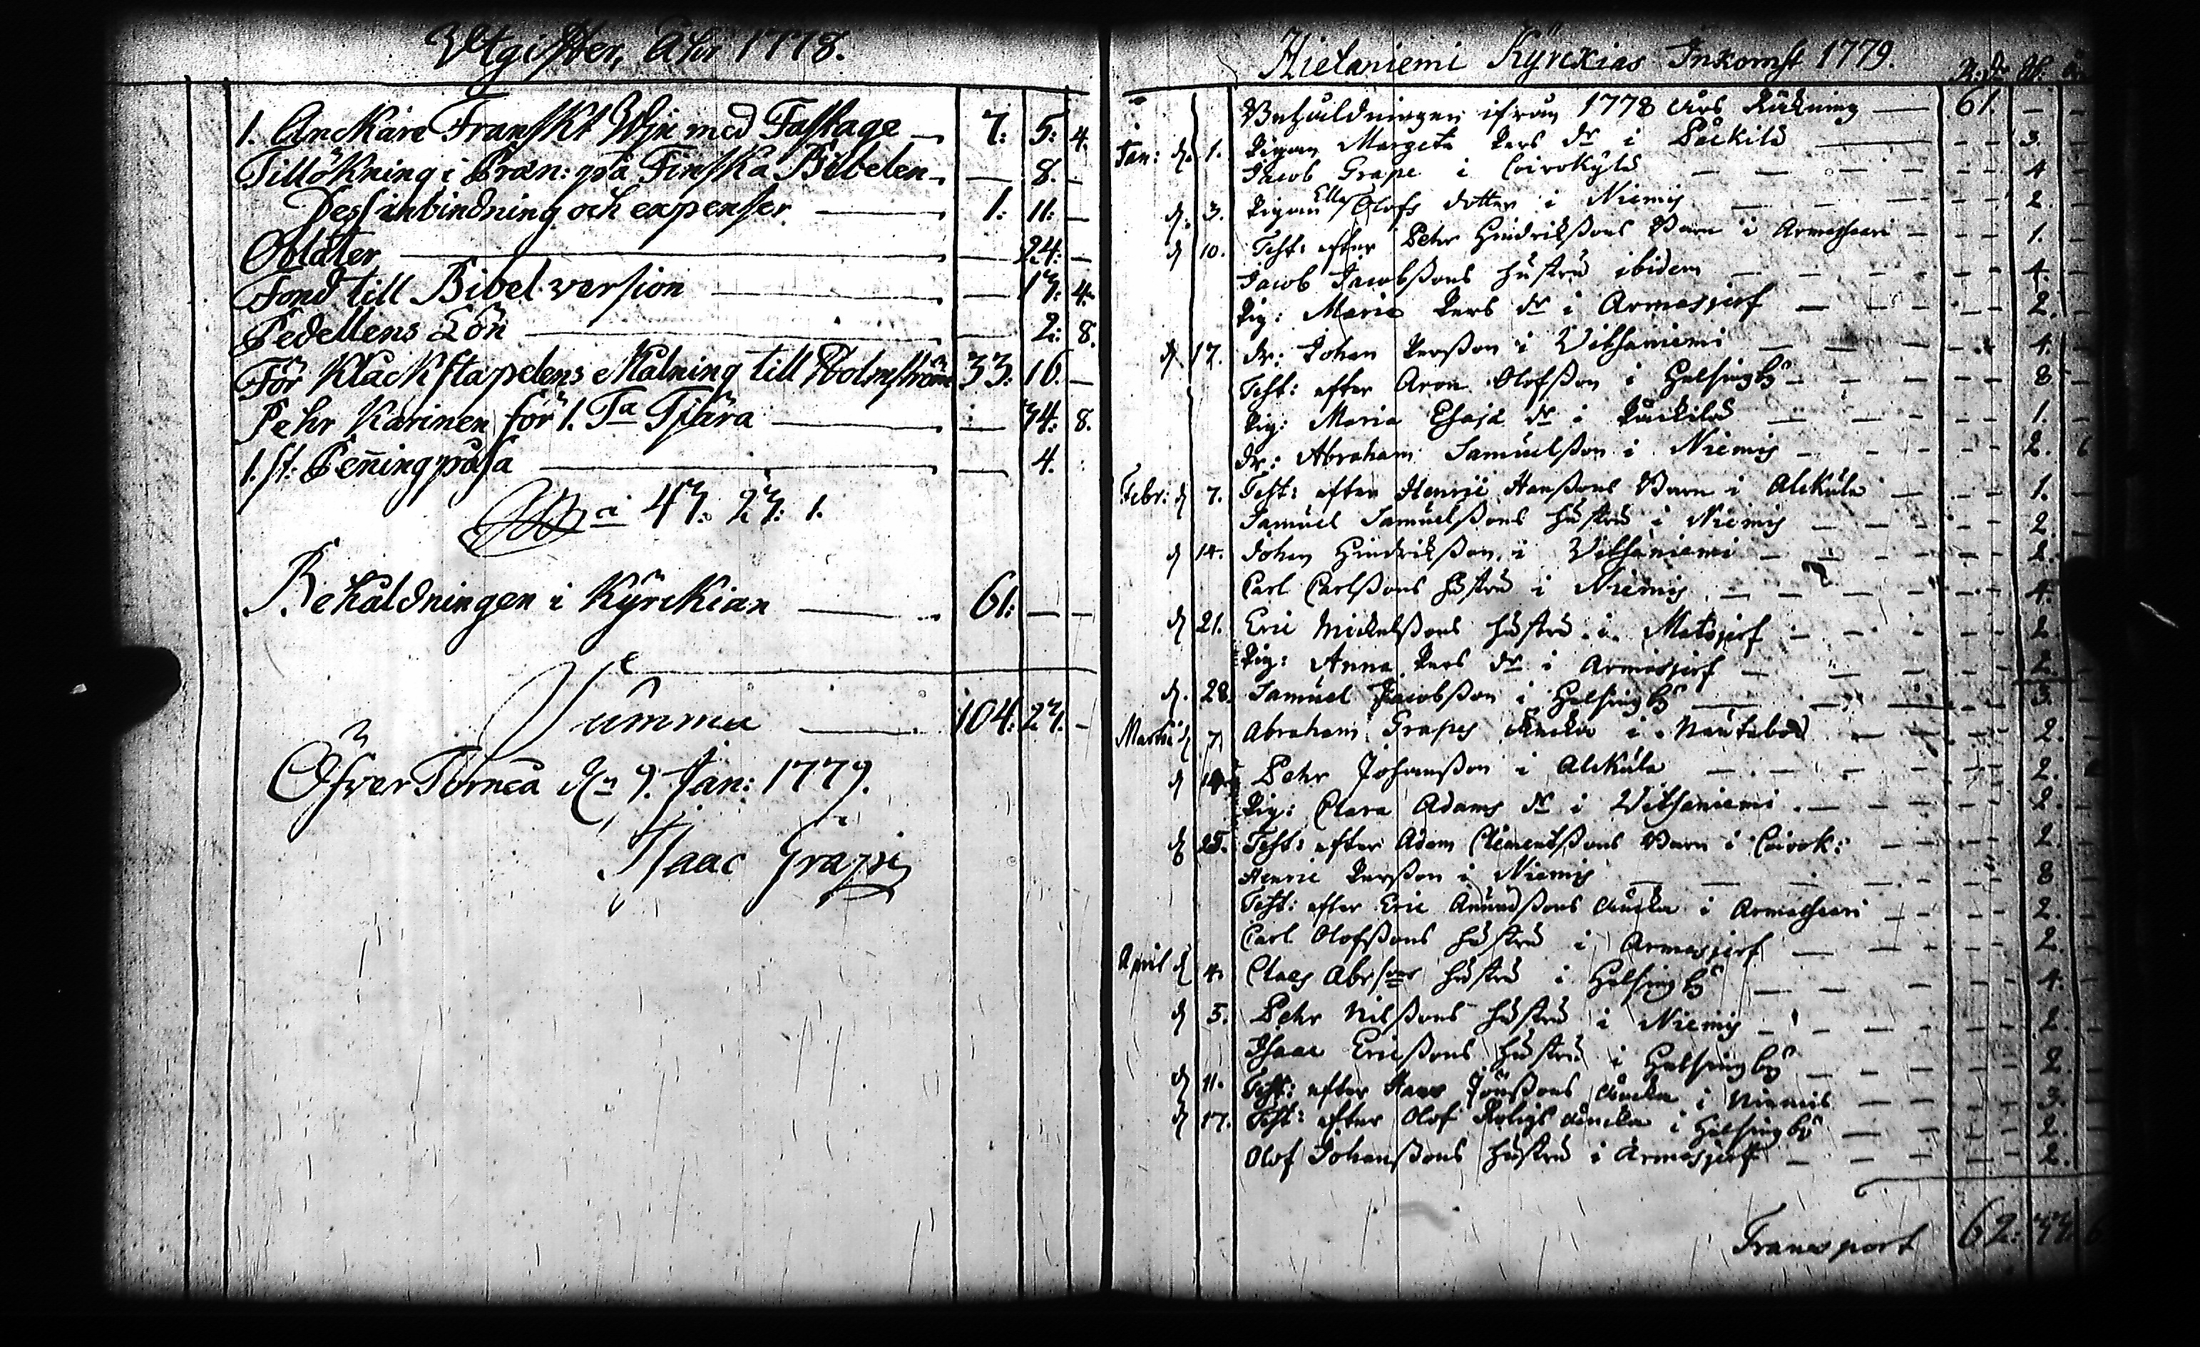 Utgifter, Åhr 1778.
1. Anckare Franskt Wjn med Fastage — 7: 5: 4.
Tillökning i Præn: på Finska Bibelen — 8. —
Dess inbindning och expenser — 1: 11: —
Oblater — 24: —
Fond till Bibel version — 17: 4.
Pedellens Lön — 2: 8.
För Klåckstapelens målning till Holmström 33: 16. —
Pehr Karinen för 1. Ta Tjära — 34: 8.
1. st. Peningpåsa — 4.
Sma 43: 27: 1.
Behåldningen i Kyrckian — 61: — —
Summa — 104: 27. —
ÖfverTorneå dn 9. Jan: 1779.
Isaac Grape
Hietaniemi Kyrckias Inkomst 1779. R:dr
Behåldningen ifrån 1778 Års Räkning — 61. — —
Jan: d. 1. Pigan Margeta Pers dr i Päckilä — 3.
Jacob Grape i Coivokylä — 4
d. 3. Pigan Ella Olofs dotter i Niemis — 2.
d 10. Test: efter Pehr Hindrikssons Barn i Armassaari — 1.
Jacob Jacobssons hustru ibidem — 4.
Pig: Maria Pers dr i Armasjerf — 2.
d. 17. dr: Johan Persson i Vitsaniemi — 4.
Test: efter Aron Olofsson i Helsingby — 8
Pig: Maria Esaja dr i Päckilä — 1.
dr: Abraham Samuelsson i Niemis — 2. 6
Febr: d 7. Test: efter Henric Hanssons Barn i Alckula — 1.
Samuel Samuelssons hustru i Niemis — 2
d 14. Johan Hindriksson i Vitsaniemi — 2.
Carl Carlssons hustru i Niemis — 4.
d 21. Eric Mickelssons hustru i Matojerf — 2.
Pig: Anna Pers dr i Armasjerf — 2.
d. 28. Samuel Jacobsson i Helsingby — 3.
Martii d 7. Abraham Grapes Encka i — 2.
d 14. Pehr Johansson i Alckula — 2.
Pig: Clara Adams dr i Vitsaniemi — 2.
d 25. Test: efter Adam Clementssons Barn i Coivok: — 2.
Henric Persson i Niemis — 8
Test: efter Eric Amundssons Encka i Armassaari — 2.
Carl Olofssons hustru i Armasjerf — 2.
April d 4. Claes Abrssons hustru i Helsingby — 4.
d 5. Pehr Nilssons hustru i Niemis — 2.
Isaac Ericssons hustru i Helsingby — 2.
d 11. Test: efter Hans Jönssons Encka i Niemis — 3.
d 17. Test: efter Olof Encka i Helsingby — 2.
Olof Johanssons hustru i Armasjerf — 2.
Transport 62: 44: 6